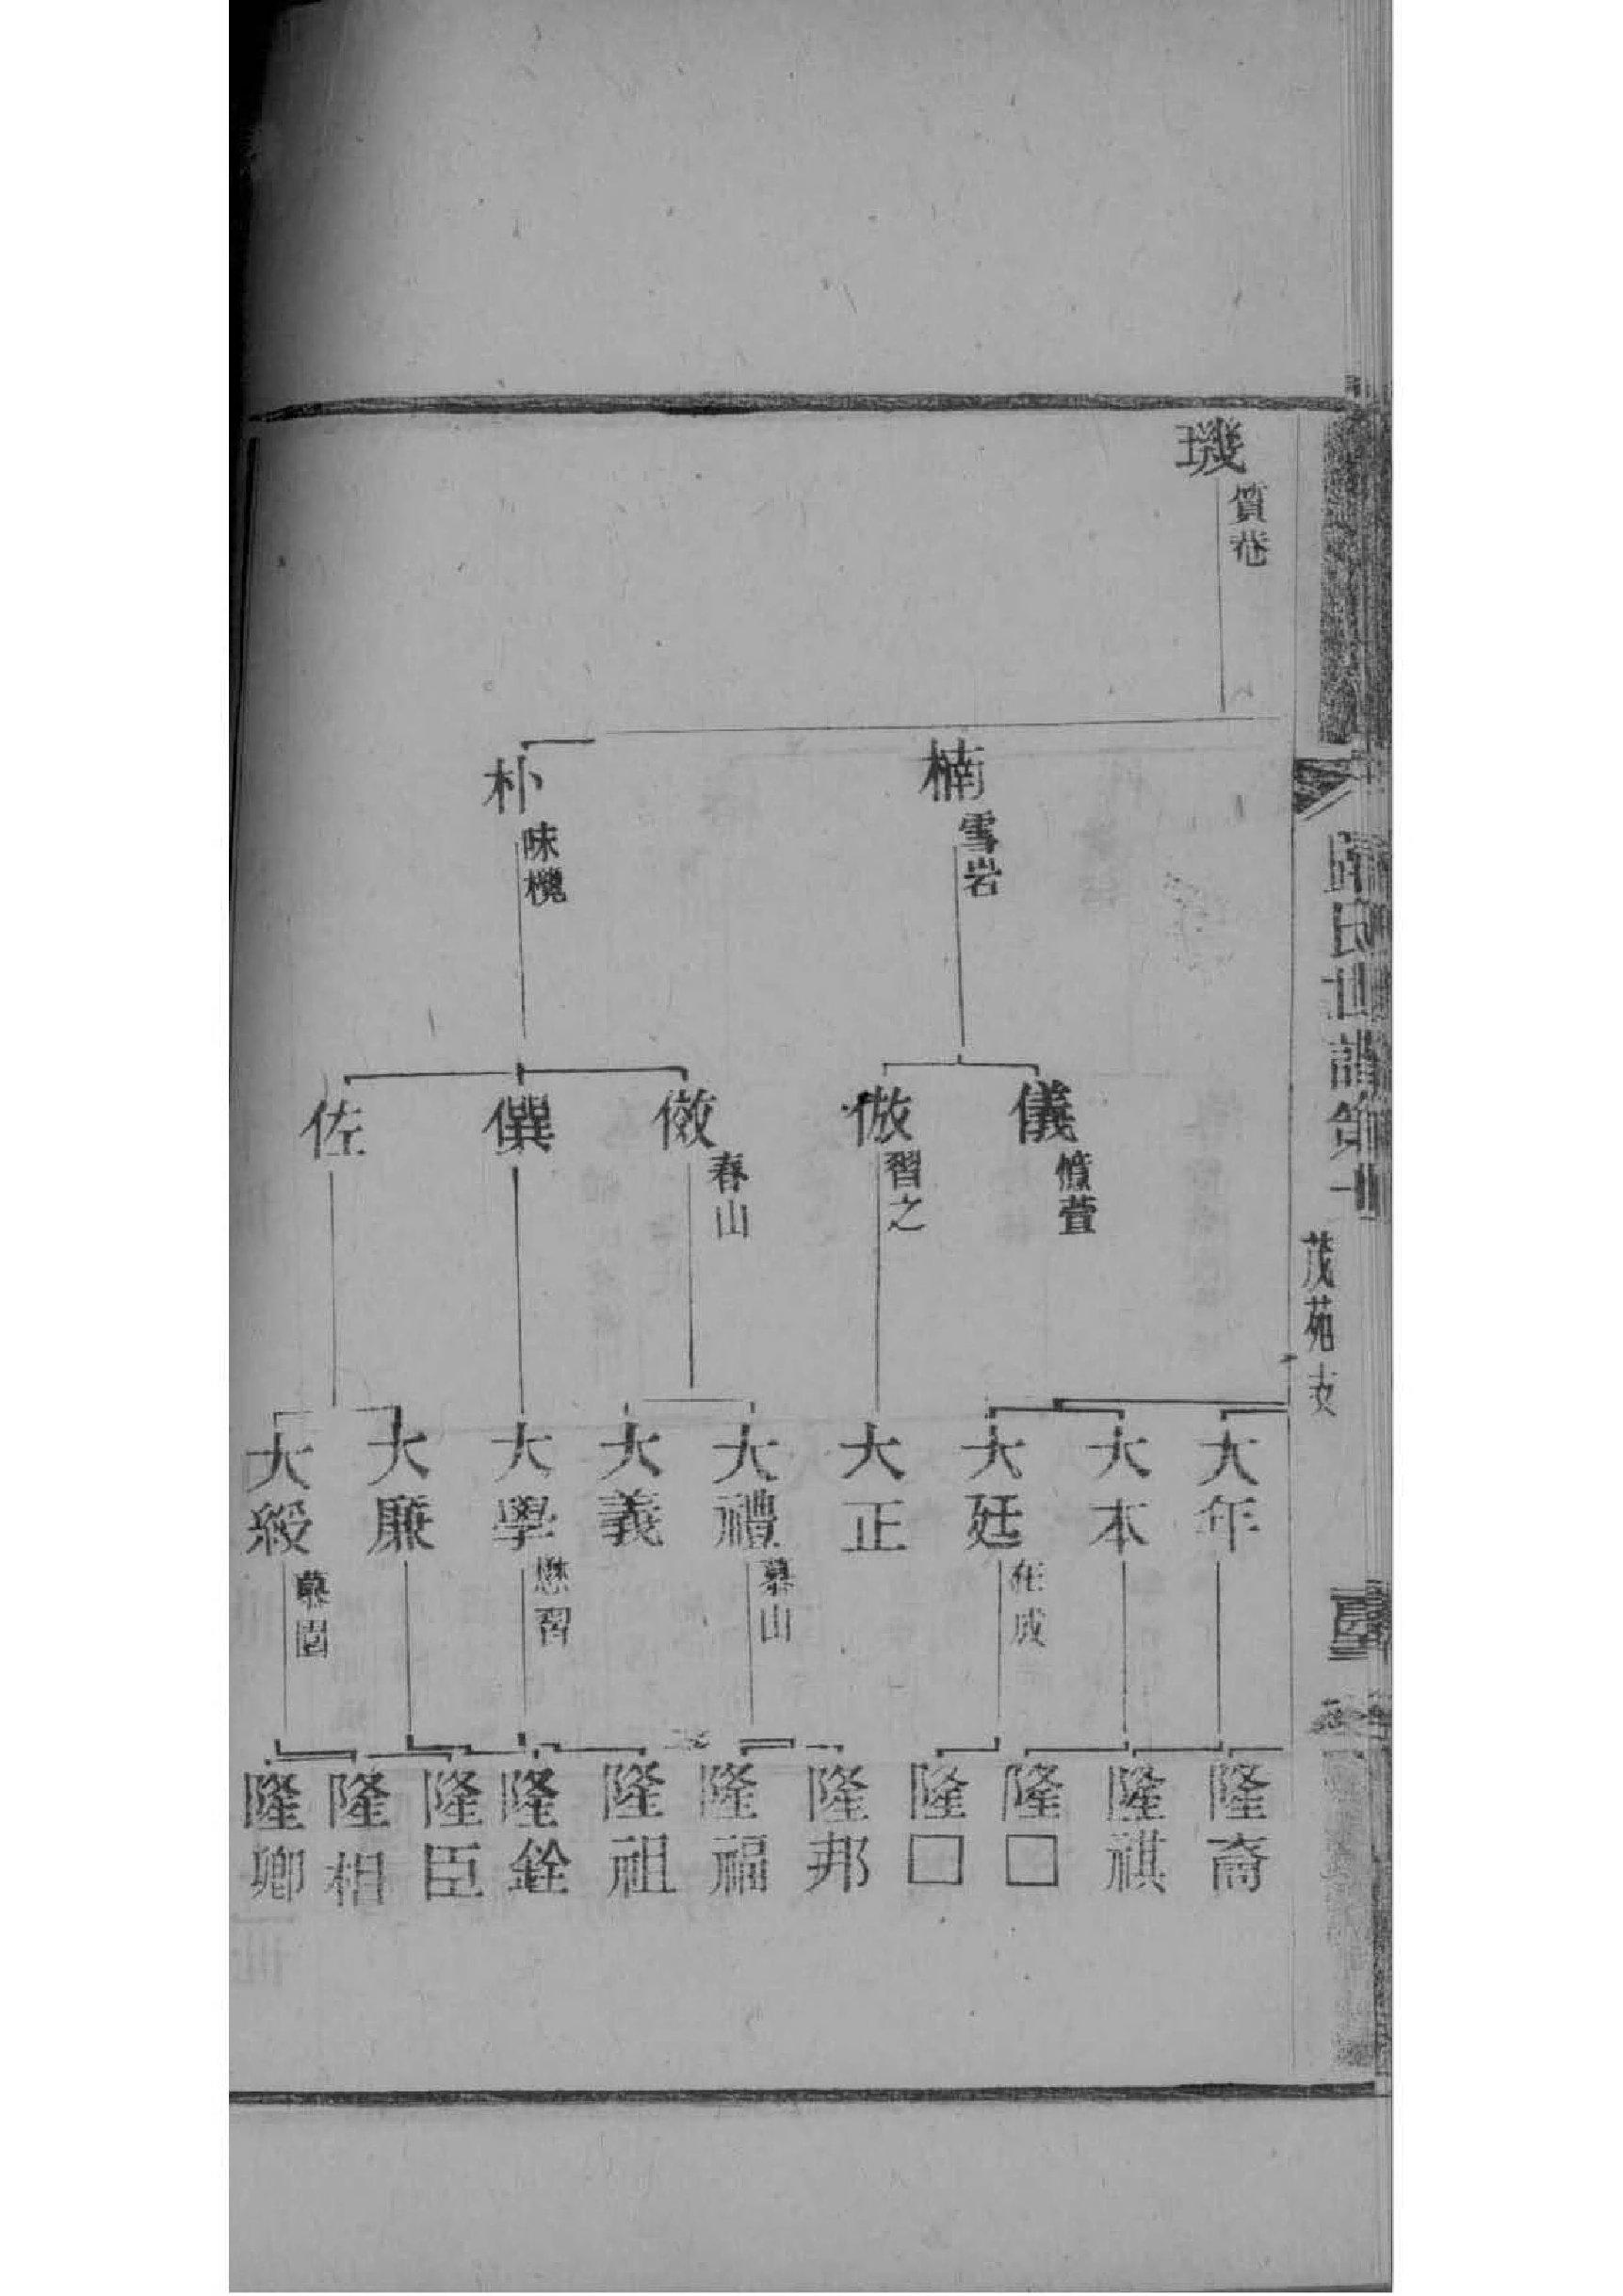 歸氏世譜第十
茂苑支
璣
質菴
楠
雪岩
朴
味欖
儀
倣
習之
儆
春山
僎
佐
大年
大本
大廷
在成
大正
大禮
慕山
大義
大學
懋習
大廉
大綬
慕園
隆裔
隆祺
隆□
隆□
隆邦
隆福
隆祖
隆銓
隆臣
隆相
隆卿